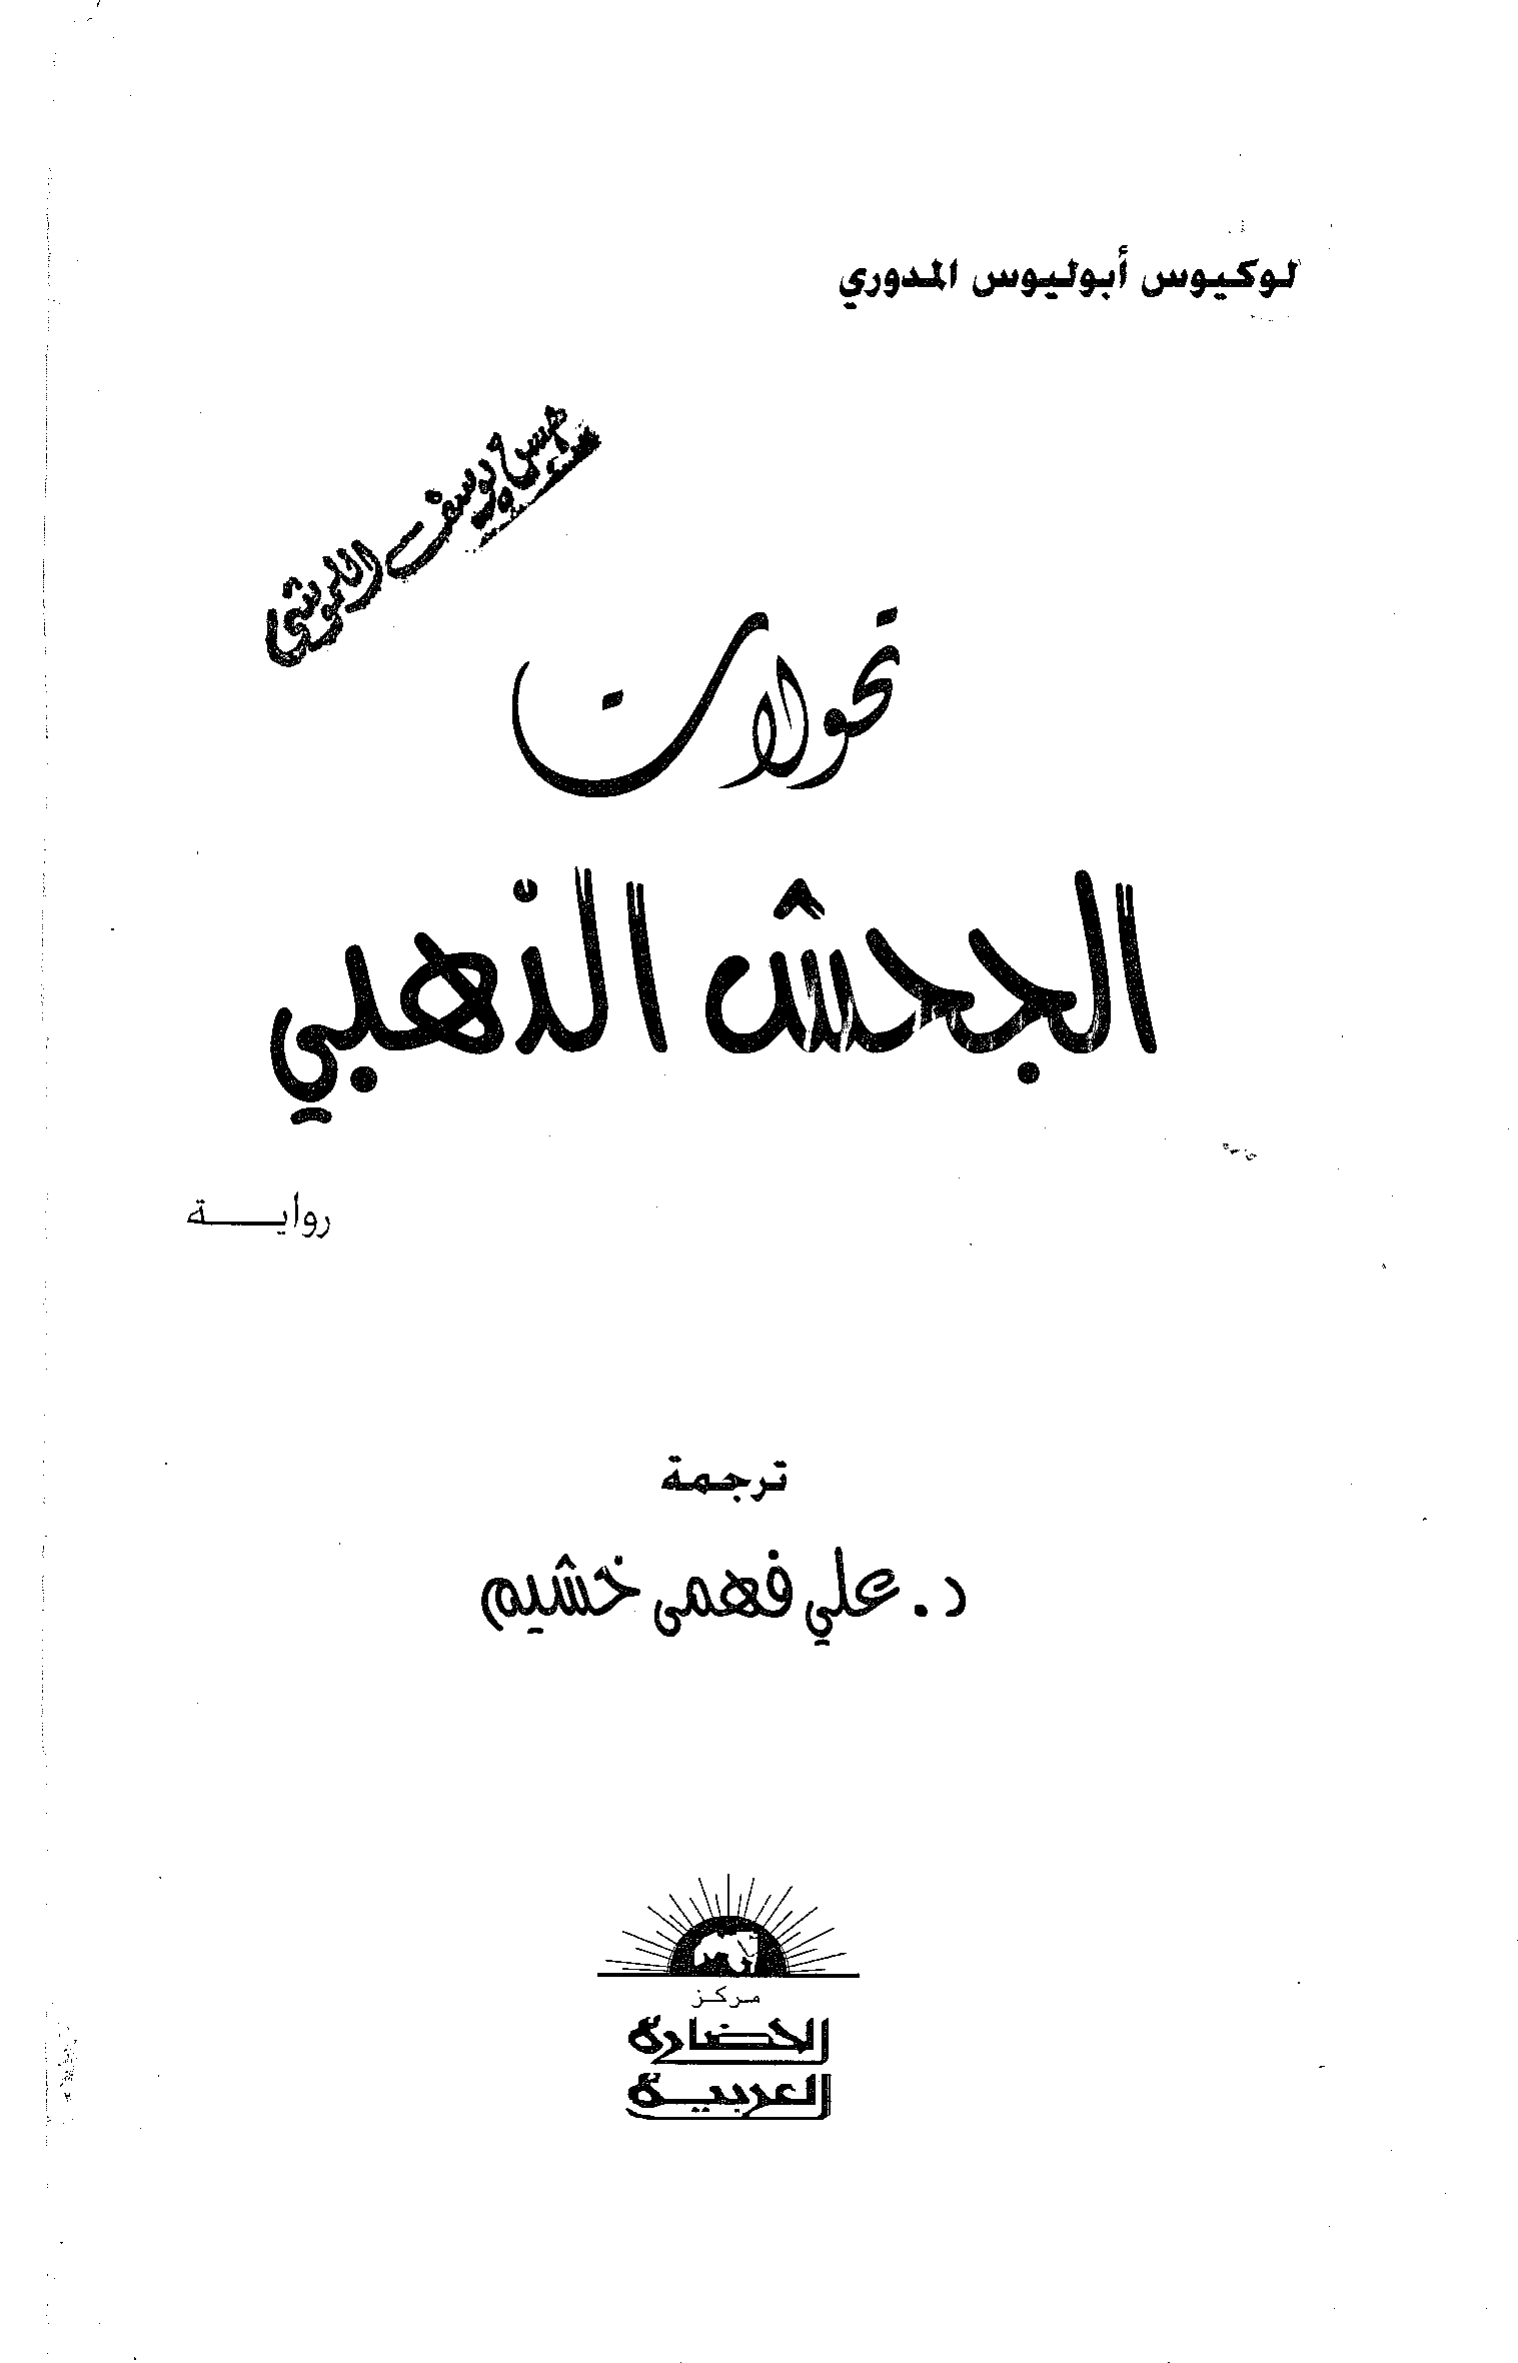 لوكيوس أبوليوس المدوري
يوسف
تحولات
الجحش الذهبي
روايـــة
ترجمة
د. علي فهمى خشيم
مركز
الحضارة
العربية